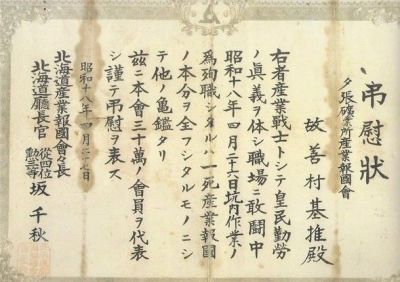 弔慰狀
夕張礦業所産業報國會
故善村基推殿
右者産業戰士トシテ皇民勤勞
ノ眞義ヲ体シ職場ニ敢鬪中
昭和十八年四月二十六日坑内作業ノ
為殉職シタルハ一死産業報國
ノ本分ヲ全フシタルモノニシ
テ他ノ亀鑑タリ
玆ニ本會三十萬ノ會員ヲ代表
シ謹テ弔慰ヲ表ス
昭和十八年四月二十七日
北海道産業報國會々長
北海道廳長官 從四位勳三等 坂千秋